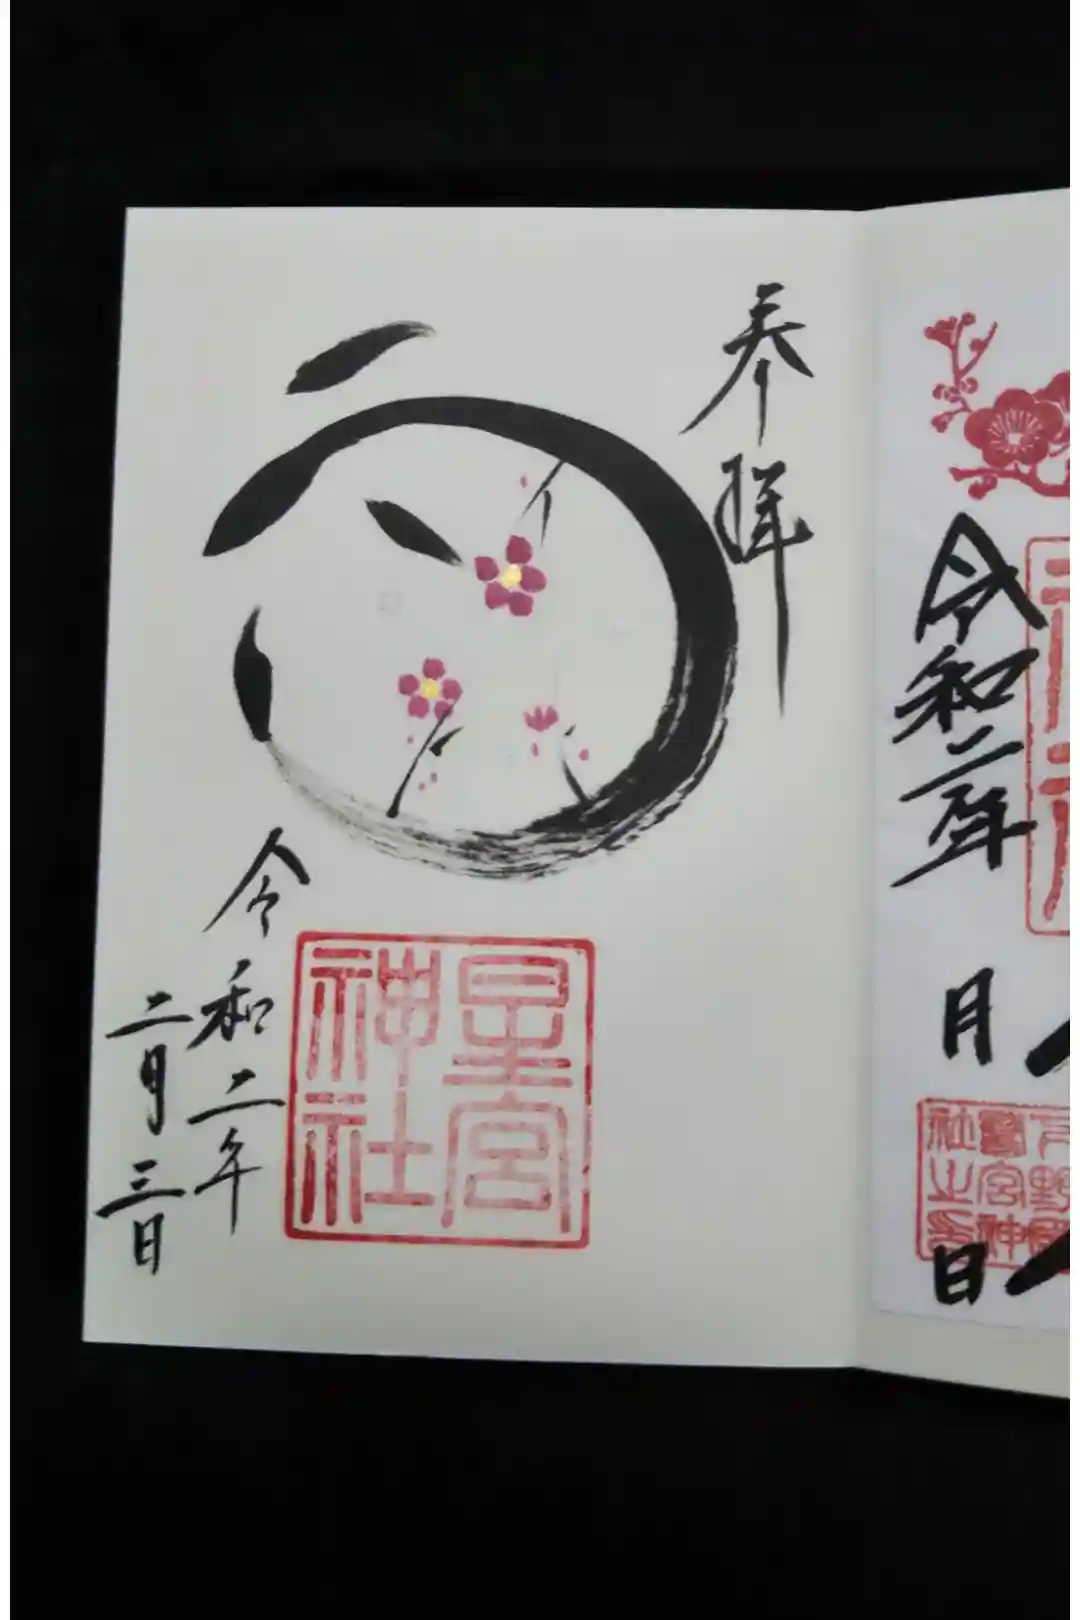 奉拝
星宮
神社
令和二年
二月三日
令和二年
月
日
宮神
社之